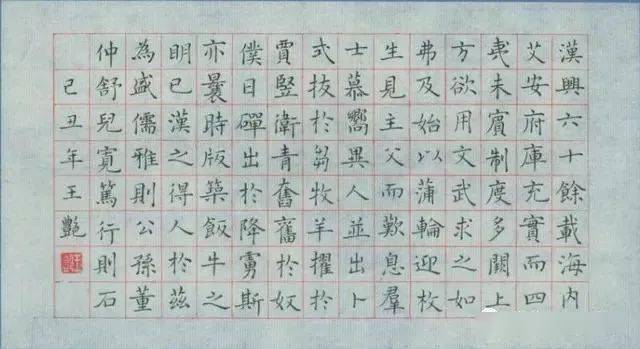 漢興六十餘載海内
艾安府庫充實而四
夷未賓制度多闕上
方欲用文武求之如
弗及始以蒲輪迎枚
生見主父而歎息羣
士慕嚮異人並出卜
式抜於芻牧羊擢於
賈豎衛青奮舊於奴
僕日磾出於降虜斯
亦曩時版築飯牛之
明已漢之得人於茲
為盛儒雅則公孫董
仲舒兒寬篤行則石
己丑年王艷